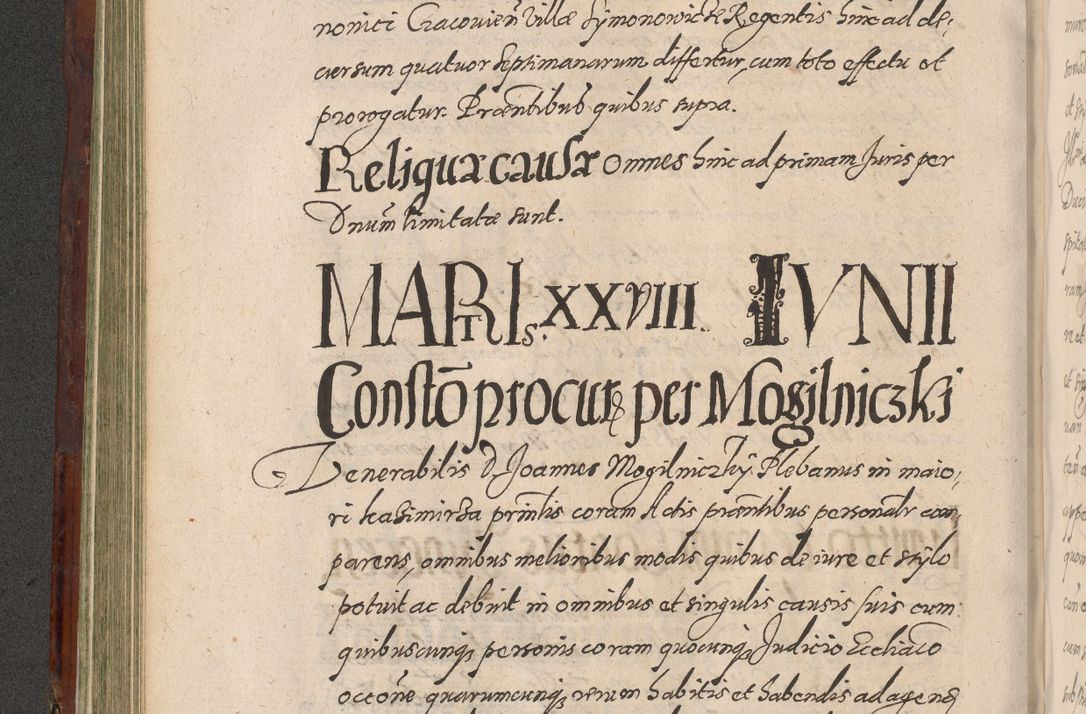 nonici Cracovien̄ Villæ Symonowicze Regentis hinc ad de-
cursum quatuor septimanarum differtur, cum toto effectu et
prorogatur. Præn̄tibus quibus supra.
Reliquæ causæ omnes hinc ad primam Juris per
Dnum̄ limitatæ sunt.
MARTIs. XXVIII. IVNII
Constō procur per Mogilniczki
Venerabilis D. Joannes Mogilniczky Plebanus in maio-
ri kazimirza prin̄tis coram Actis præn̄tibus personalr com
parens, omnibus melioribus modis quibus de iure et stylo
potuit ac debuit in omnibus et singulis causis suis cum
quibuscunq; personis coram quocunq; Judicio Eccl̄iaco
occōne quarumcunq; rerum habitis et habendis ad agend